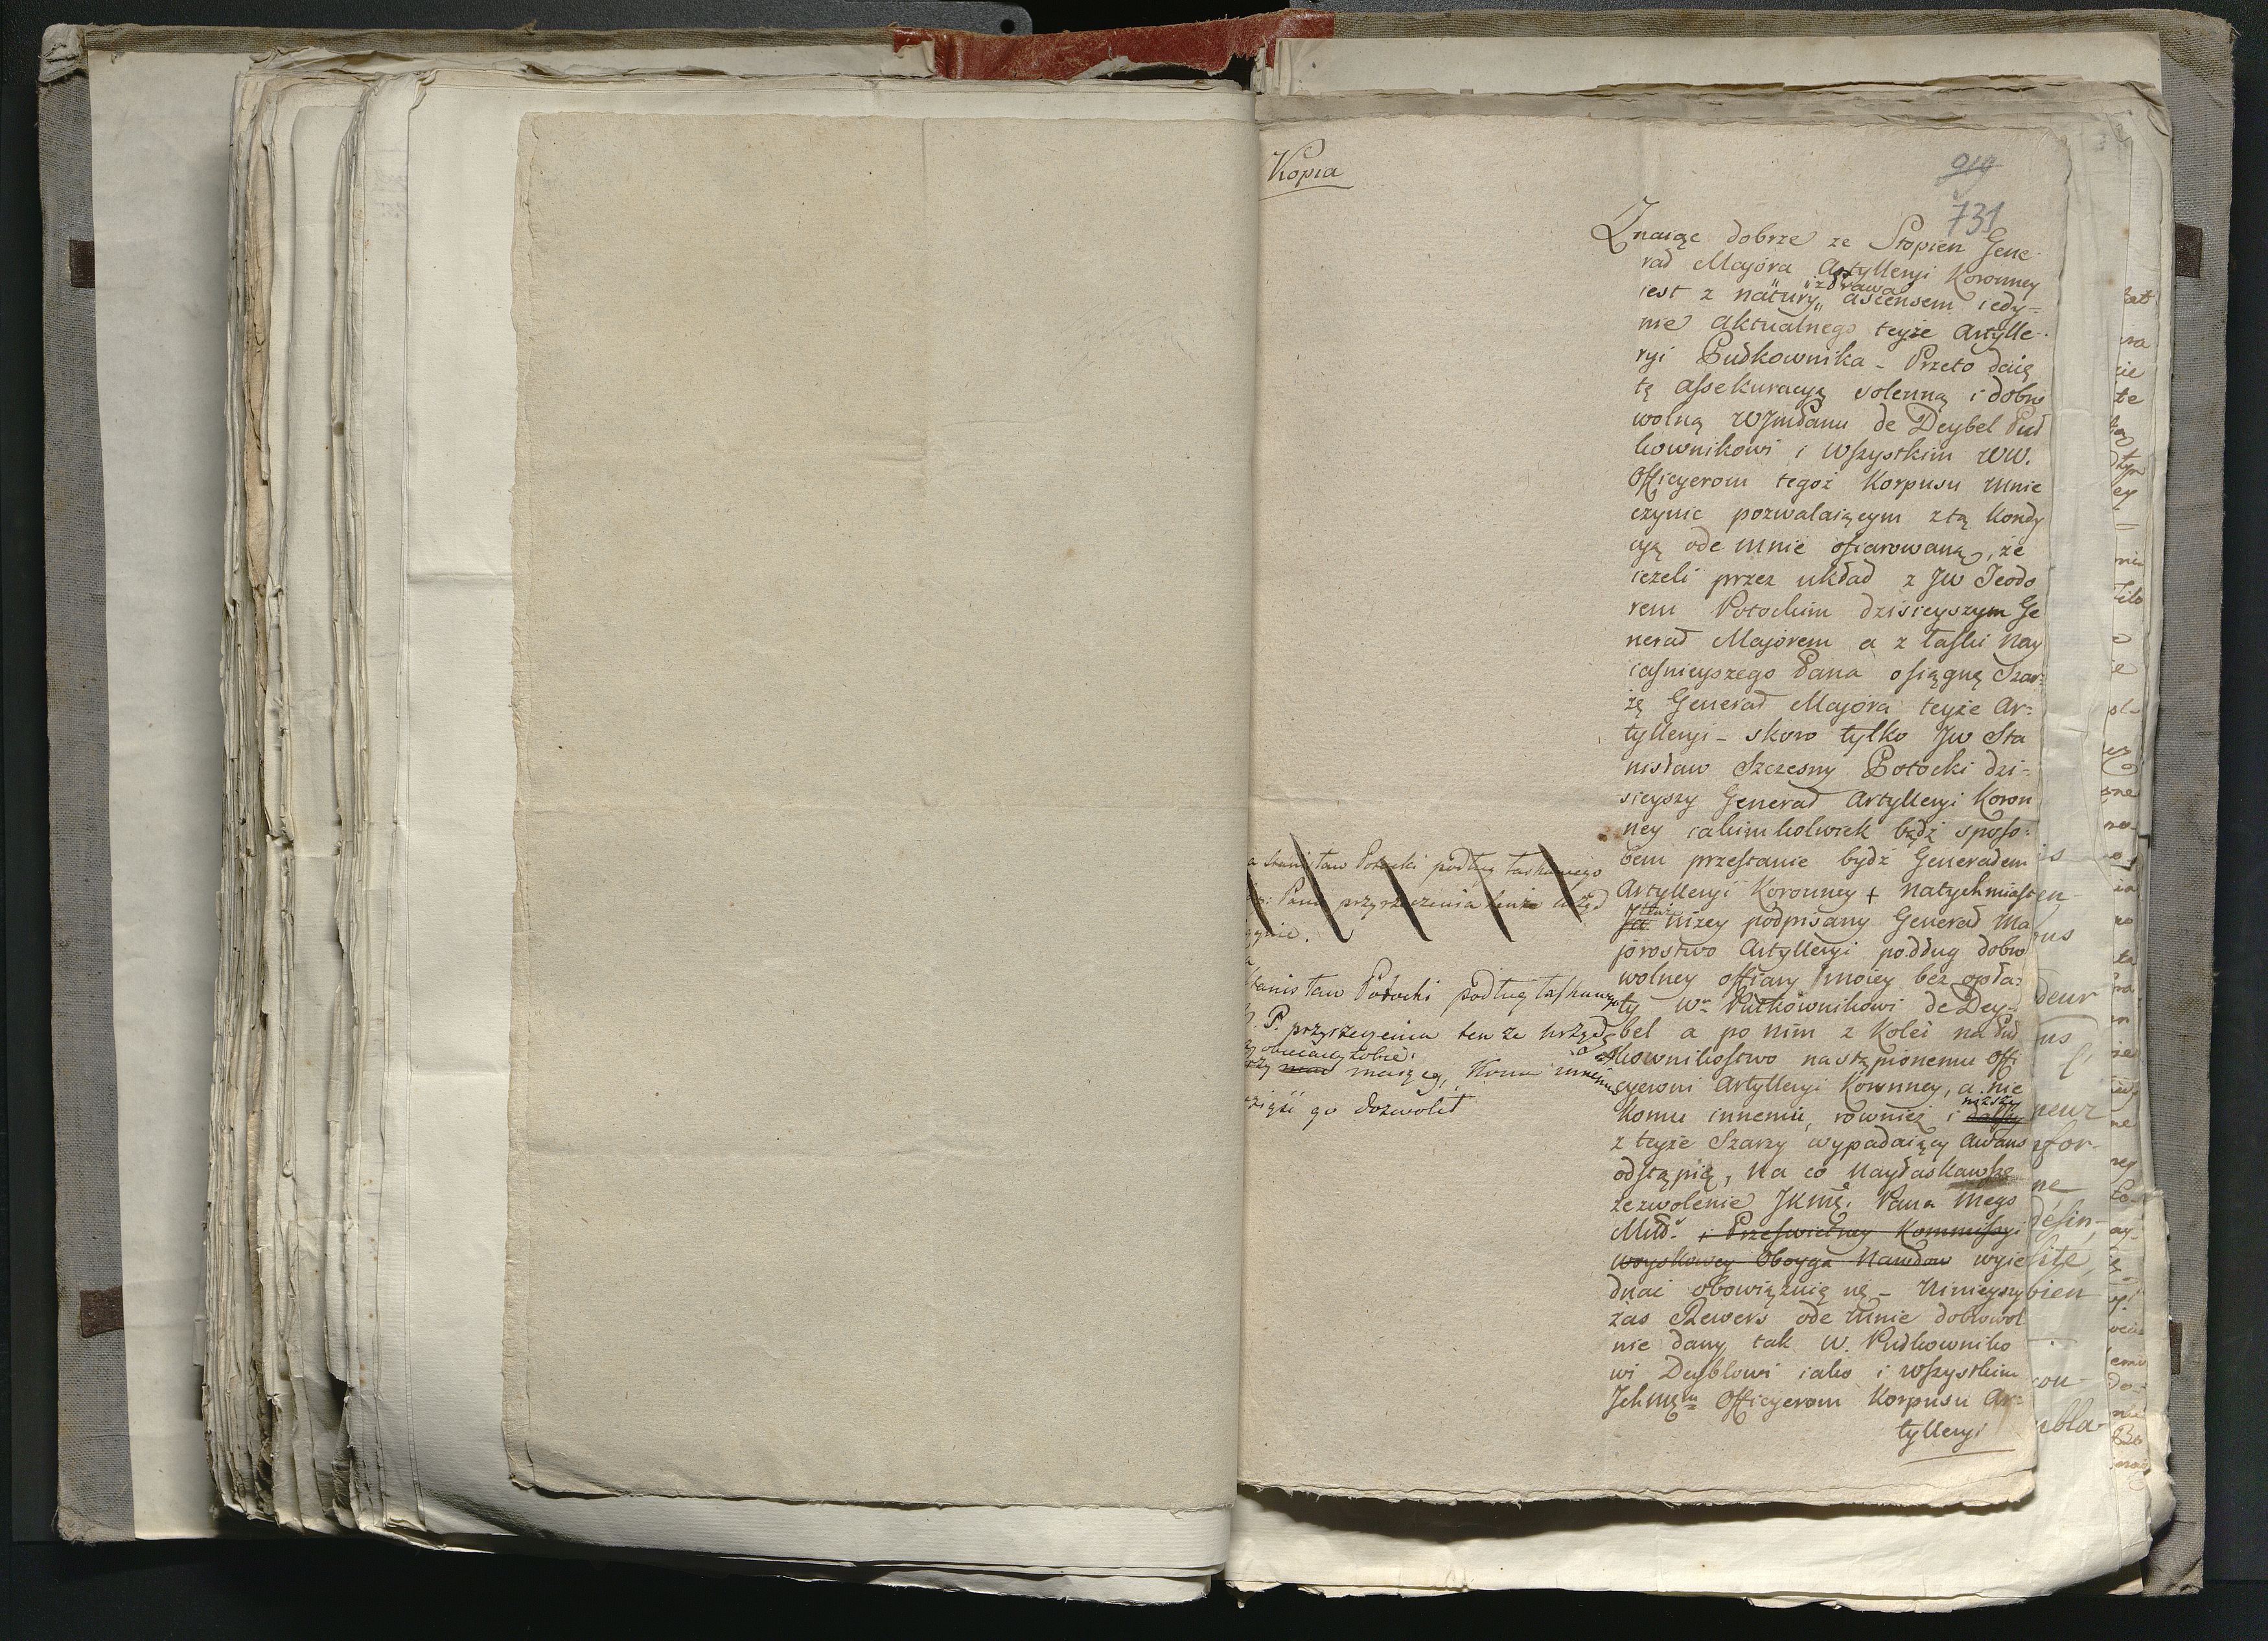 Kopia
919
731
Znaiąc dobrze ze Stopien Gene-
rał Majora Artylleryi Koronney
iest z natury „i z prawa„ ascensem iedy=
nie aktualnego teyże Artylle-
ryi Pułkownika - Przeto daię
tę assekuracyą solenną i dobro
wolną WJmPanu de Deybel Puł
kownikowi i Wszystkim WW.
Officyerom tegoż Korpusu mnie
czynic pozwalaiącym z tą Kondy
cyą ode mnie ofiarowaną, że
ieżeli przez układ z JW Teodo
rem Potockim dzisieyszym Ge
nerał Majorem a z łaski Nay
iaśnieyszego Pana osiągnę Szar=
żę Generał Majora teyże Ar=
tylleryi - skoro tylko JW Sta
nisław Szczesny Potocki dzi=
sieyszy Generał Artylleryi Koron
ney iakimkolwiek bądź sposo=
bem przestanie bydź Generałem
Artylleryi Koronney + natychmiast
Ja niżey podpisany Generał Ma
jorostwo Artylleryi podług dobro
wolney offiary moiey bez opła=
ty Wu Pułkownikowi de Dey=
bel a po nim z Kolei na Puł
kownikostwo nastąpionemu Offi
cyerowi Artylleryi Koronney, a nie
komu innemu, rownież i niższy
z teyże Szarży wypadaiący Awans
odstąpię, Na co Nayłaskawsze
zezwolenie JKMci Pana mego
Miłº i Prześwietney Kommissyi
Woyskowey Oboyga Narodow wyie
dnać obowiązuię się - Ninieyszy
zas Rewers ode mnie dobrowol
nie dany tak W. Pułkowniko
wi Deyblowi iako i wszystkim
Ichmcm Officyerom Korpusu Ar=
tylleryi
a Stanisław Potocki podług łaskawego
Pana przyrzeczenia tenże urząd
Stanisław Potocki podług łaskawego
N. P. przyrzeczenia tenże urząd
obiecany sobie
maiący, Komu innemu
wziąść go dozwolił